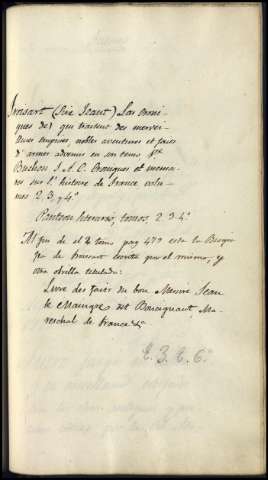 Froisart (Sire Jean) Las croni-
ques de) qui traitent des mervei-
lluses emprises, nobles aventures et faits
d'armes advenus en son temps
Buchon J. A. C. Croniques et memoi-
res sur l'histoire de France volu-
mes 2. 3. y 4.
Panteon literario, tomos, 2. 3. 4.
Al fin de el tomo pag 477 esta la Biogra-
fia de Froisart escrita por el mismo, y
otra obrilla titulada:
Livre des faits du bon Messire Jean
le Maingre dit Bouciquaut, Ma-
reschal de France &
E. 3. C. 6.